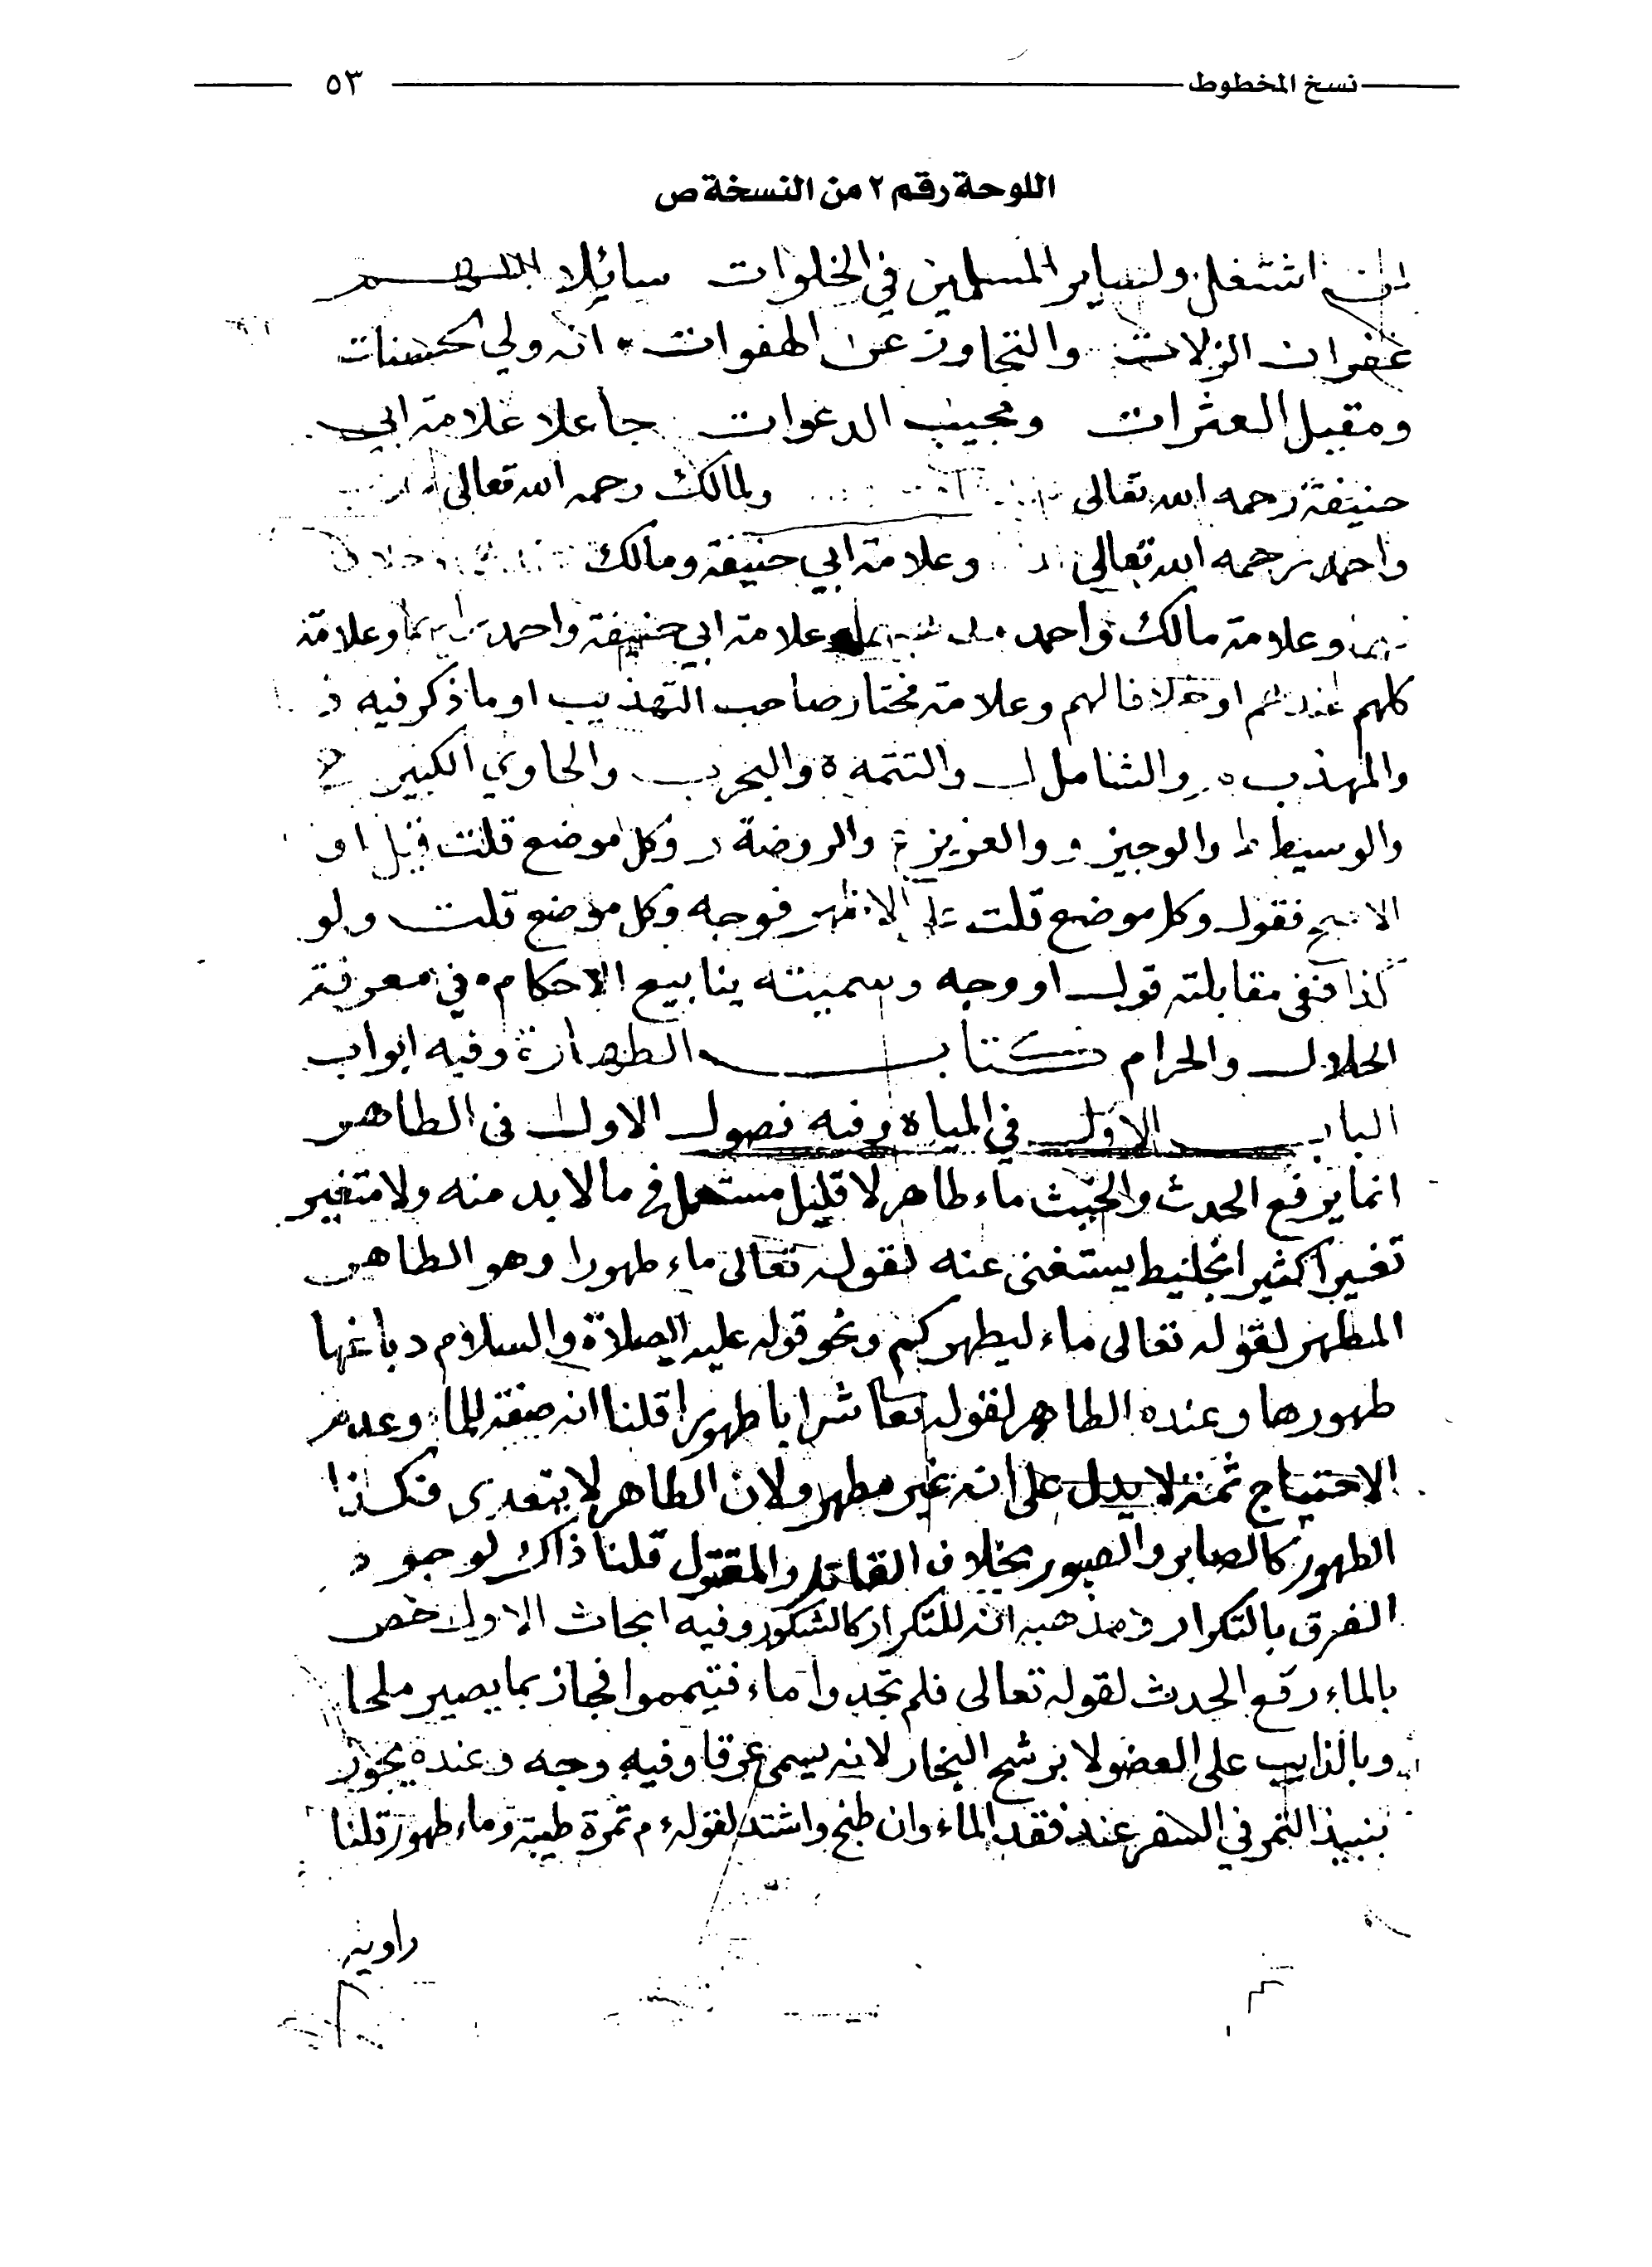 نسخ المخطوط ٥٣
اللوحة رقم ٢ من النسخة ص
اشتغل ولساير المسلمين في الخلوات سائلا
غفران الزلات والتجاوز عن الهفوات انه ولي الحسنات
ومقيل العثرات ومجيب الدعوات جاعلا علامة ابي
حنيفة رحمه الله تعالى ولمالك رحمه الله تعالى
واحمد رحمه الله تعالى وعلامة ابي حنيفة ومالك
وعلامة مالك واحمد علامة ابي حنيفة واحمد وعلامة
كلهم او خلافا لهم وعلامة مختار صاحب التهذيب او ما ذكر فيه ذ
والمهذب ه والشامل ل والتتمة ة والبحر ب والحاوي الكبير
والوسيط ط والوجيز و والعزيز والروضة ر وكل موضع قلت قيل او
الاصح فقول وكل موضع قلت الاظهر فوجه وكل موضع قلت ولو
كذا ففي مقابلته قول او وجه وسميته ينابيع الاحكام في معرفة
الحلال والحرام كتاب الطهارة وفيه ابواب
الباب الاول في المياه وفيه فصول الاول في الطاهر
انما يرفع الحدث والخبث ماء طاهر لا قليل مستعمل في ما لا بد منه ولا متغير
تغيرا كثيرا بخليط يستغنى عنه لقوله تعالى ماء طهورا وهو الطاهر
المطهر لقوله تعالى ماء ليطهركم ونحو قوله عليه الصلاة والسلام دباغها
طهورها وعنده الطاهر لقوله تعا شرابا طهورا قلنا انه صفة للماء وعدم
الاحتياج ثمة لا يدل على انه غير مطهر ولان الطاهر لا يتعدى فكذا
الطهور كالصابر والصبور بخلاف القاتل والمقتول قلنا ذاك لوجود
الفرق بالتكرار ومذهبه انه للتكرار كالشكور وفيه ابحاث الاول خص
بالماء رفع الحدث لقوله تعالى فلم تجدوا ماء فتيمموا فجاز بما يصير ملحا
وبالذايب على العضو لا برشح البخار لانه يسمى عرقا وفيه وجه وعنده يجوز
بنبيذ التمر في السفر عند فقد الماء وان طبخ واشتد لقوله م تمرة طيبة وماء طهور قلنا
راويه